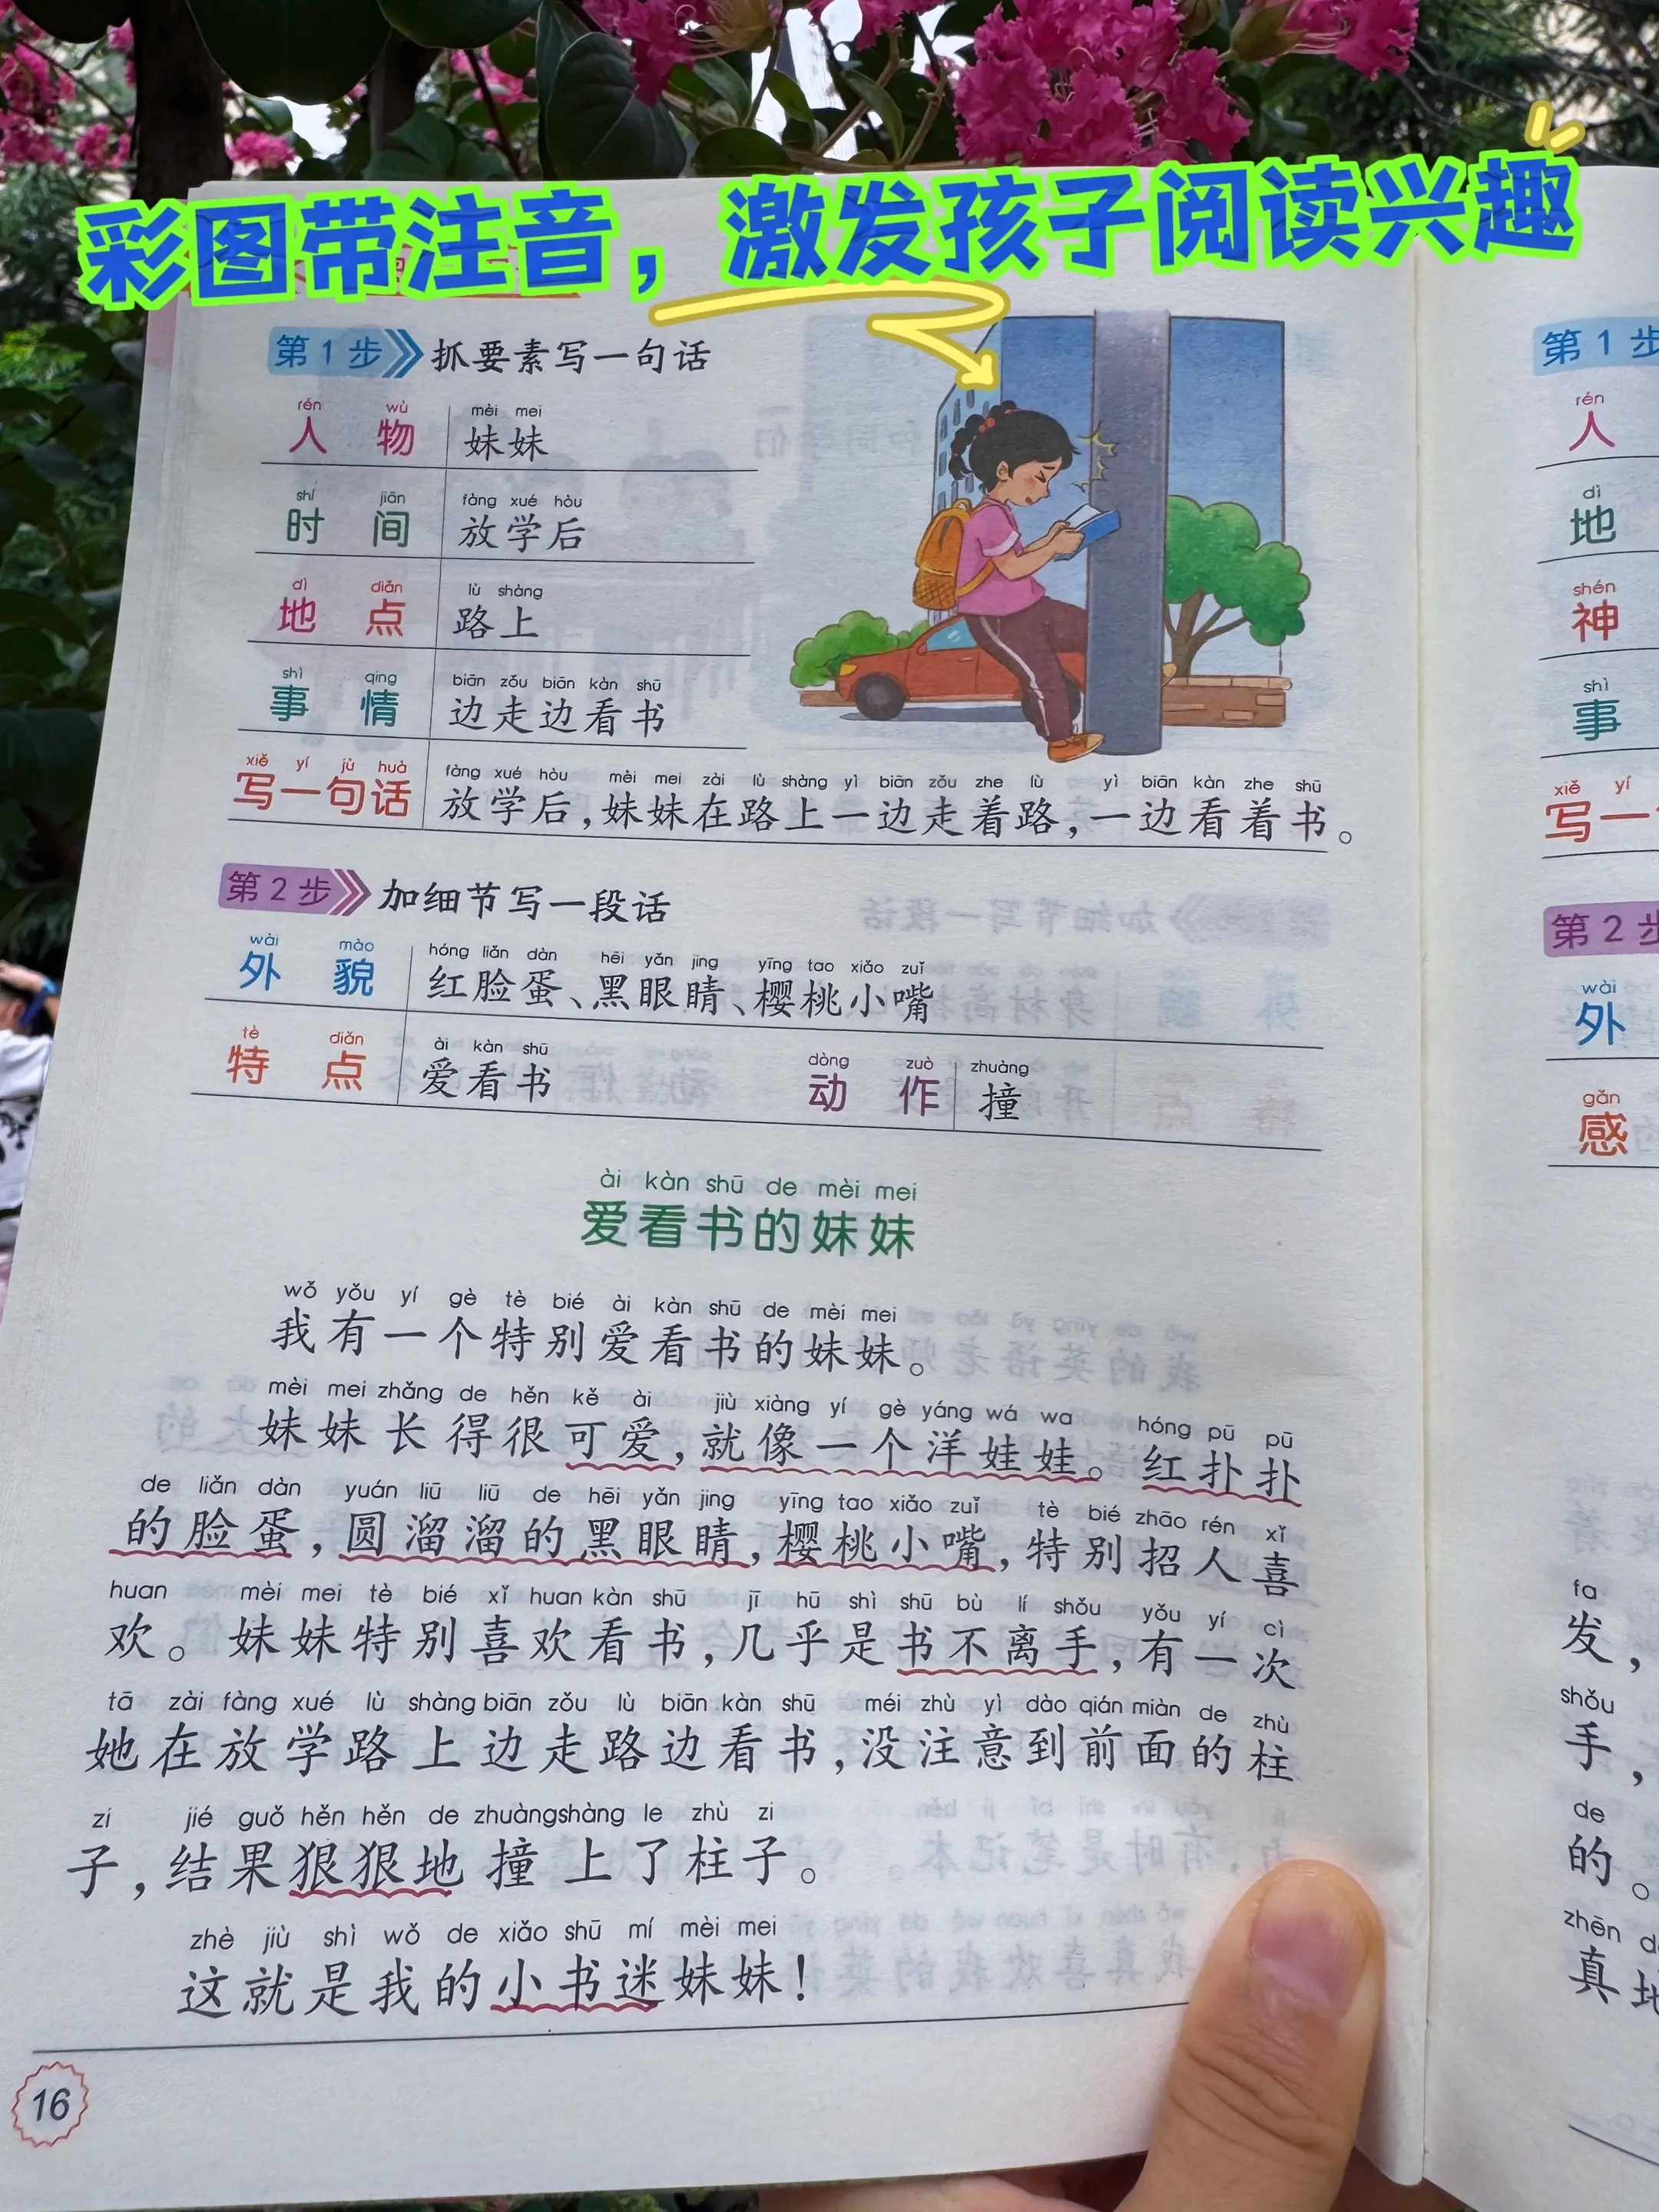 彩图带注音，激发孩子阅读兴趣
第1步 抓要素写一句话
rén wù mèi mei
人物 妹妹
shí jiān fàng xué hòu
时间 放学后
dì diǎn lù shàng
地点 路上
shì qing biān zǒu biān kàn shū
事情 边走边看书
xiě yí jù huà fàng xué hòu mèi mei zài lù shàng yì biān zǒu zhe lù yì biān kàn zhe shū
写一句话 放学后，妹妹在路上一边走着路，一边看着书。
第2步 加细节写一段话
wài mào hóng liǎn dàn hēi yǎn jing yīng tao xiǎo zuǐ
外貌 红脸蛋、黑眼睛、樱桃小嘴
tè diǎn ài kàn shū dòng zuò zhuàng
特点 爱看书 动作 撞
ài kàn shū de mèi mei
爱看书的妹妹
wǒ yǒu yí gè tè bié ài kàn shū de mèi mei
我有一个特别爱看书的妹妹。
mèi mei zhǎng de hěn kě ài jiù xiàng yí gè yáng wá wa hóng pū pū
妹妹长得很可爱，就像一个洋娃娃。红扑扑
de liǎn dàn yuán liū liū de hēi yǎn jing yīng tao xiǎo zuǐ tè bié zhāo rén xǐ
的脸蛋，圆溜溜的黑眼睛，樱桃小嘴，特别招人喜
huan mèi mei tè bié xǐ huan kàn shū jī hū shì shū bù lí shǒu yǒu yí cì
欢。妹妹特别喜欢看书，几乎是书不离手，有一次
tā zài fàng xué lù shàng biān zǒu lù biān kàn shū méi zhù yì dào qián miàn de zhù
她在放学路上边走路边看书，没注意到前面的柱
zi jié guǒ hěn hěn de zhuàng shàng le zhù zi
子，结果狠狠地撞上了柱子。
zhè jiù shì wǒ de xiǎo shū mí mèi mei
这就是我的小书迷妹妹！
16
第1步
rén
人
dì
地
shén
神
shì
事
xiě yí
写一
第2步
wài
外
gǎn
感
fa
发，
shǒu
手，
de
的。
zhēn
真